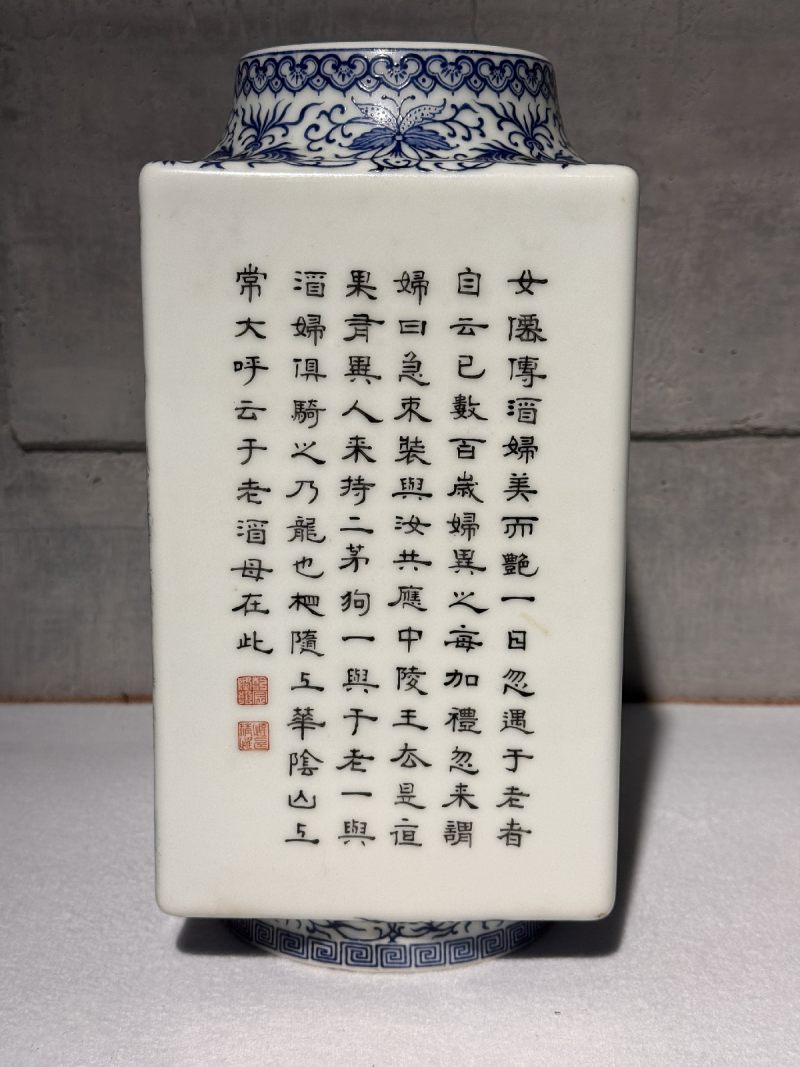 女僊傳酒婦美而艷一日忽遇于老者
自云已數百歲婦異之每加禮忽来謂
婦曰急束裝與汝共應中陵王去是亱
果有異人来持二茅狗一與于老一與
酒婦俱騎之乃龍也相隨上華陰山上
常大呼云于老酒母在此